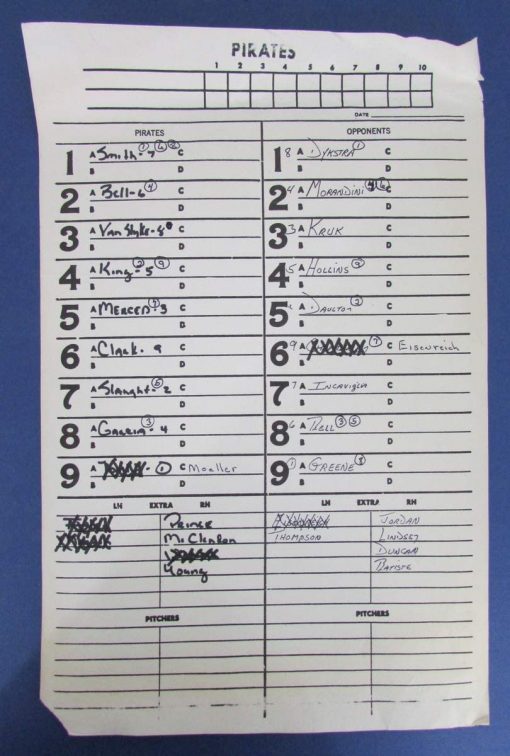 PIRATES
1 2 3 4 5 6 7 8 9 10
DATE
PIRATES
1 A Smith-7 ① ⑥ C
B D
2 A Bell-6 ④ C
B D
3 A Van Slyke-8 C
B D
4 A King-5 ② ⑨ C
B D
5 A MERCED-3 C
B D
6 A Clark-9 C
B D
7 A Slaught-2 C
B D
8 A Garcia-4 ③ C
B D
9 A - ① C Moeller
B D
LH EXTRA RH
Prince
McClendon
Young
PITCHERS
OPPONENTS
1 8 A DYKSTRA ① C
B D
2 4 A MORANDINI C
B D
3 3 A KRUK C
B D
4 5 A HOLLINS C
B D
5 A DAULTON C
B D
6 9 A C Eisenreich
B D
7 7 A INCAVIGLIA C
B D
8 6 A BELL ③ ⑤ C
B D
9 ① A GREENE C
B D
LH EXTRA RH
JORDAN
THOMPSON LINDSEY
DUNCAN
BATISTE
PITCHERS